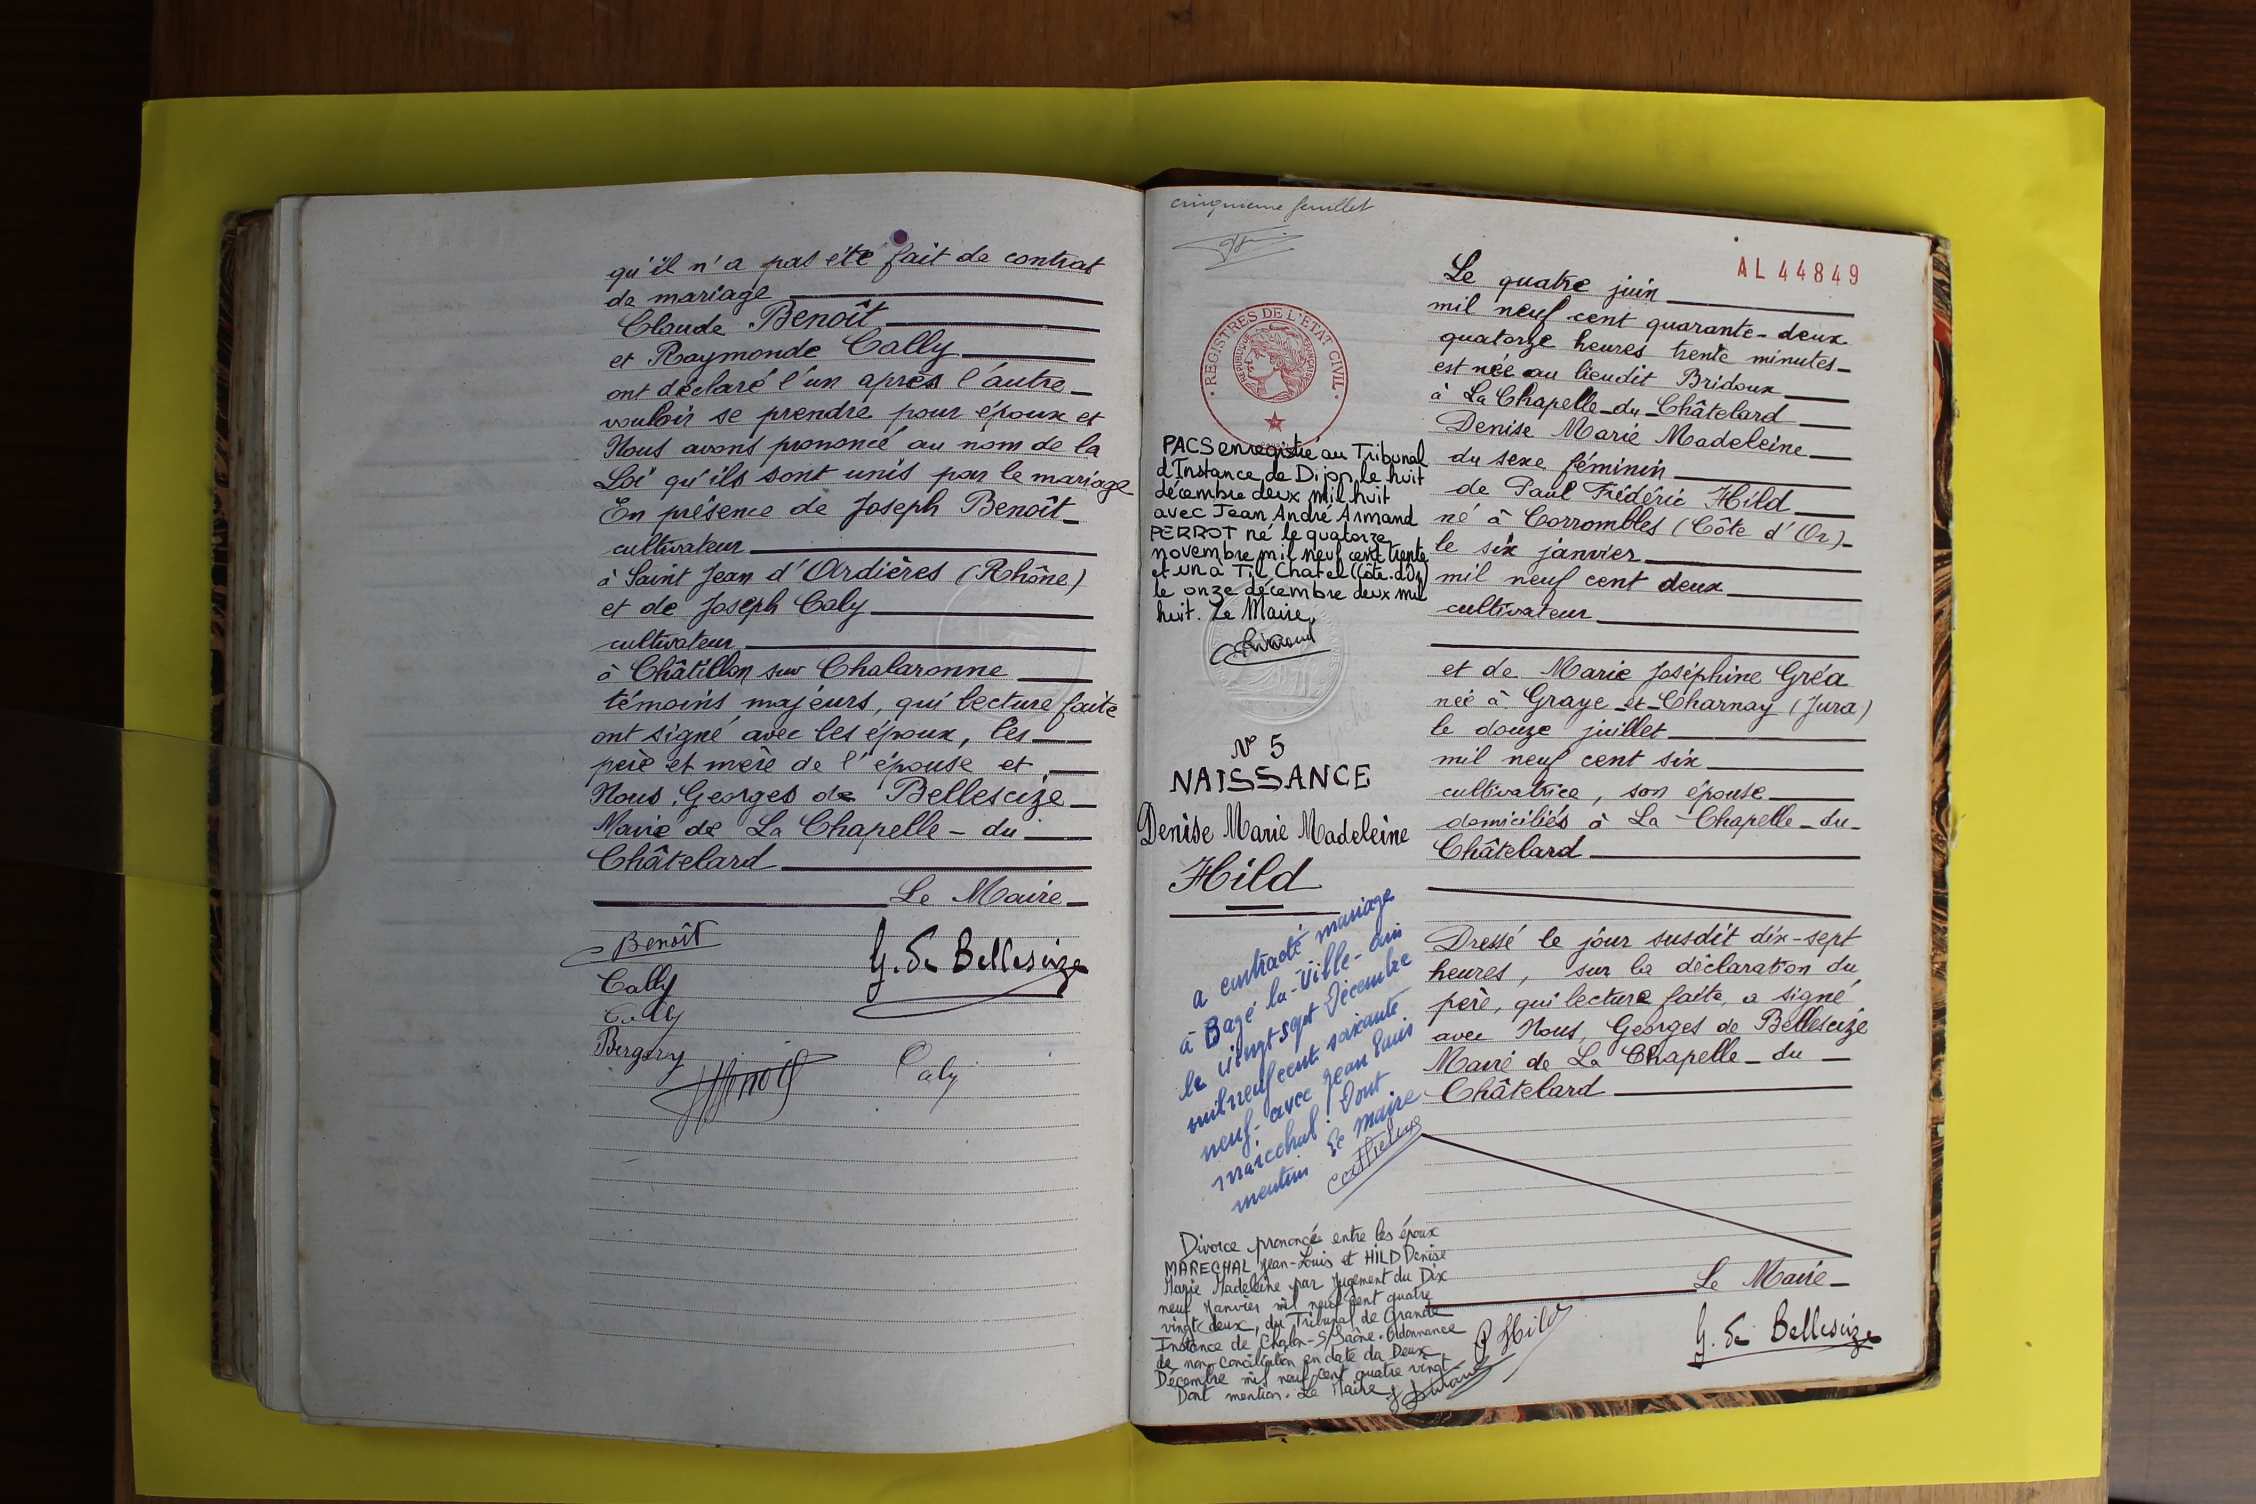 qu'il n'a pas été fait de contrat
de mariage
Claude Benoît
et Raymonde Cally
ont déclaré l'un après l'autre
vouloir se prendre pour époux et
Nous avons prononcé au nom de la
Loi qu'ils sont unis par le mariage
En présence de Joseph Benoît
cultivateur
à Saint Jean d'Ardières (Rhône)
et de Joseph Caly
cultivateur
à Châtillon sur Chalaronne
témoins majeurs, qui lecture faite
ont signé avec les époux, les
père et mère de l'épouse et
Nous, Georges de Bellescize
Maire de La Chapelle-du
Châtelard
Le Maire
Benoît
G. de Bellescize
Cally
Cally
Bergery
Benoit
Caly
cinquieme feuillet
REGISTRES DE L'ETAT CIVIL
REPUBLIQUE FRANÇAISE
PACS enregistré au Tribunal
d'Instance de Dijon le huit
décembre deux mil huit
avec Jean André Armand
PERROT né le quatorze
novembre mil neuf cent trente
et un à Til Chatel (Côte-d'Or)
le onze décembre deux mil
huit. Le Maire,
N° 5
NAISSANCE
Denise Marie Madeleine
Hild
a contracté mariage
à Bagé la-Ville-Ain
le vingt sept Décembre
mil neuf cent soixante
neuf, avec Jean Louis
marechal. Dont
mention Le Maire
Divorce prononcé entre les époux
MARECHAL Jean-Louis et HILD Denise
Marie Madeleine par Jugement du Dix
neuf Janvier mil neuf cent quatre
vingt deux, du Tribunal de Grande
Instance de Chalon-S/Saône. Ordonnance
de non-conciliation en date du Deux
Décembre mil neuf cent quatre vingt
Dont mention. Le Maire
AL 44849
Le quatre juin
mil neuf cent quarante-deux
quatorze heures trente minutes
est née au lieudit Bridoux
à La Chapelle-du-Châtelard
Denise Marie Madeleine
du sexe féminin
de Paul Frédéric Hild
né à Corrombles (Côte d'Or)
le six janvier
mil neuf cent deux
cultivateur
et de Marie Joséphine Gréa
née à Graye-et-Charnay (Jura)
le douze juillet
mil neuf cent six
cultivatrice, son épouse
domiciliés à La Chapelle-du-
Châtelard
Dressé le jour susdit dix-sept
heures, sur la déclaration du
père, qui lecture faite, a signé
avec Nous, Georges de Bellescize
Maire de La Chapelle-du
Châtelard
Le Maire
P Hild
G. de Bellescize